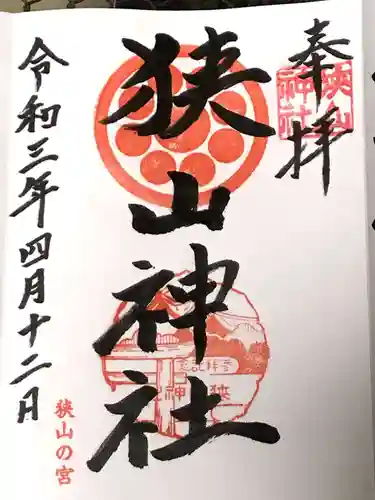 奉拝
狭山神社
狭山神社
令和三年四月十二日
狭山の宮